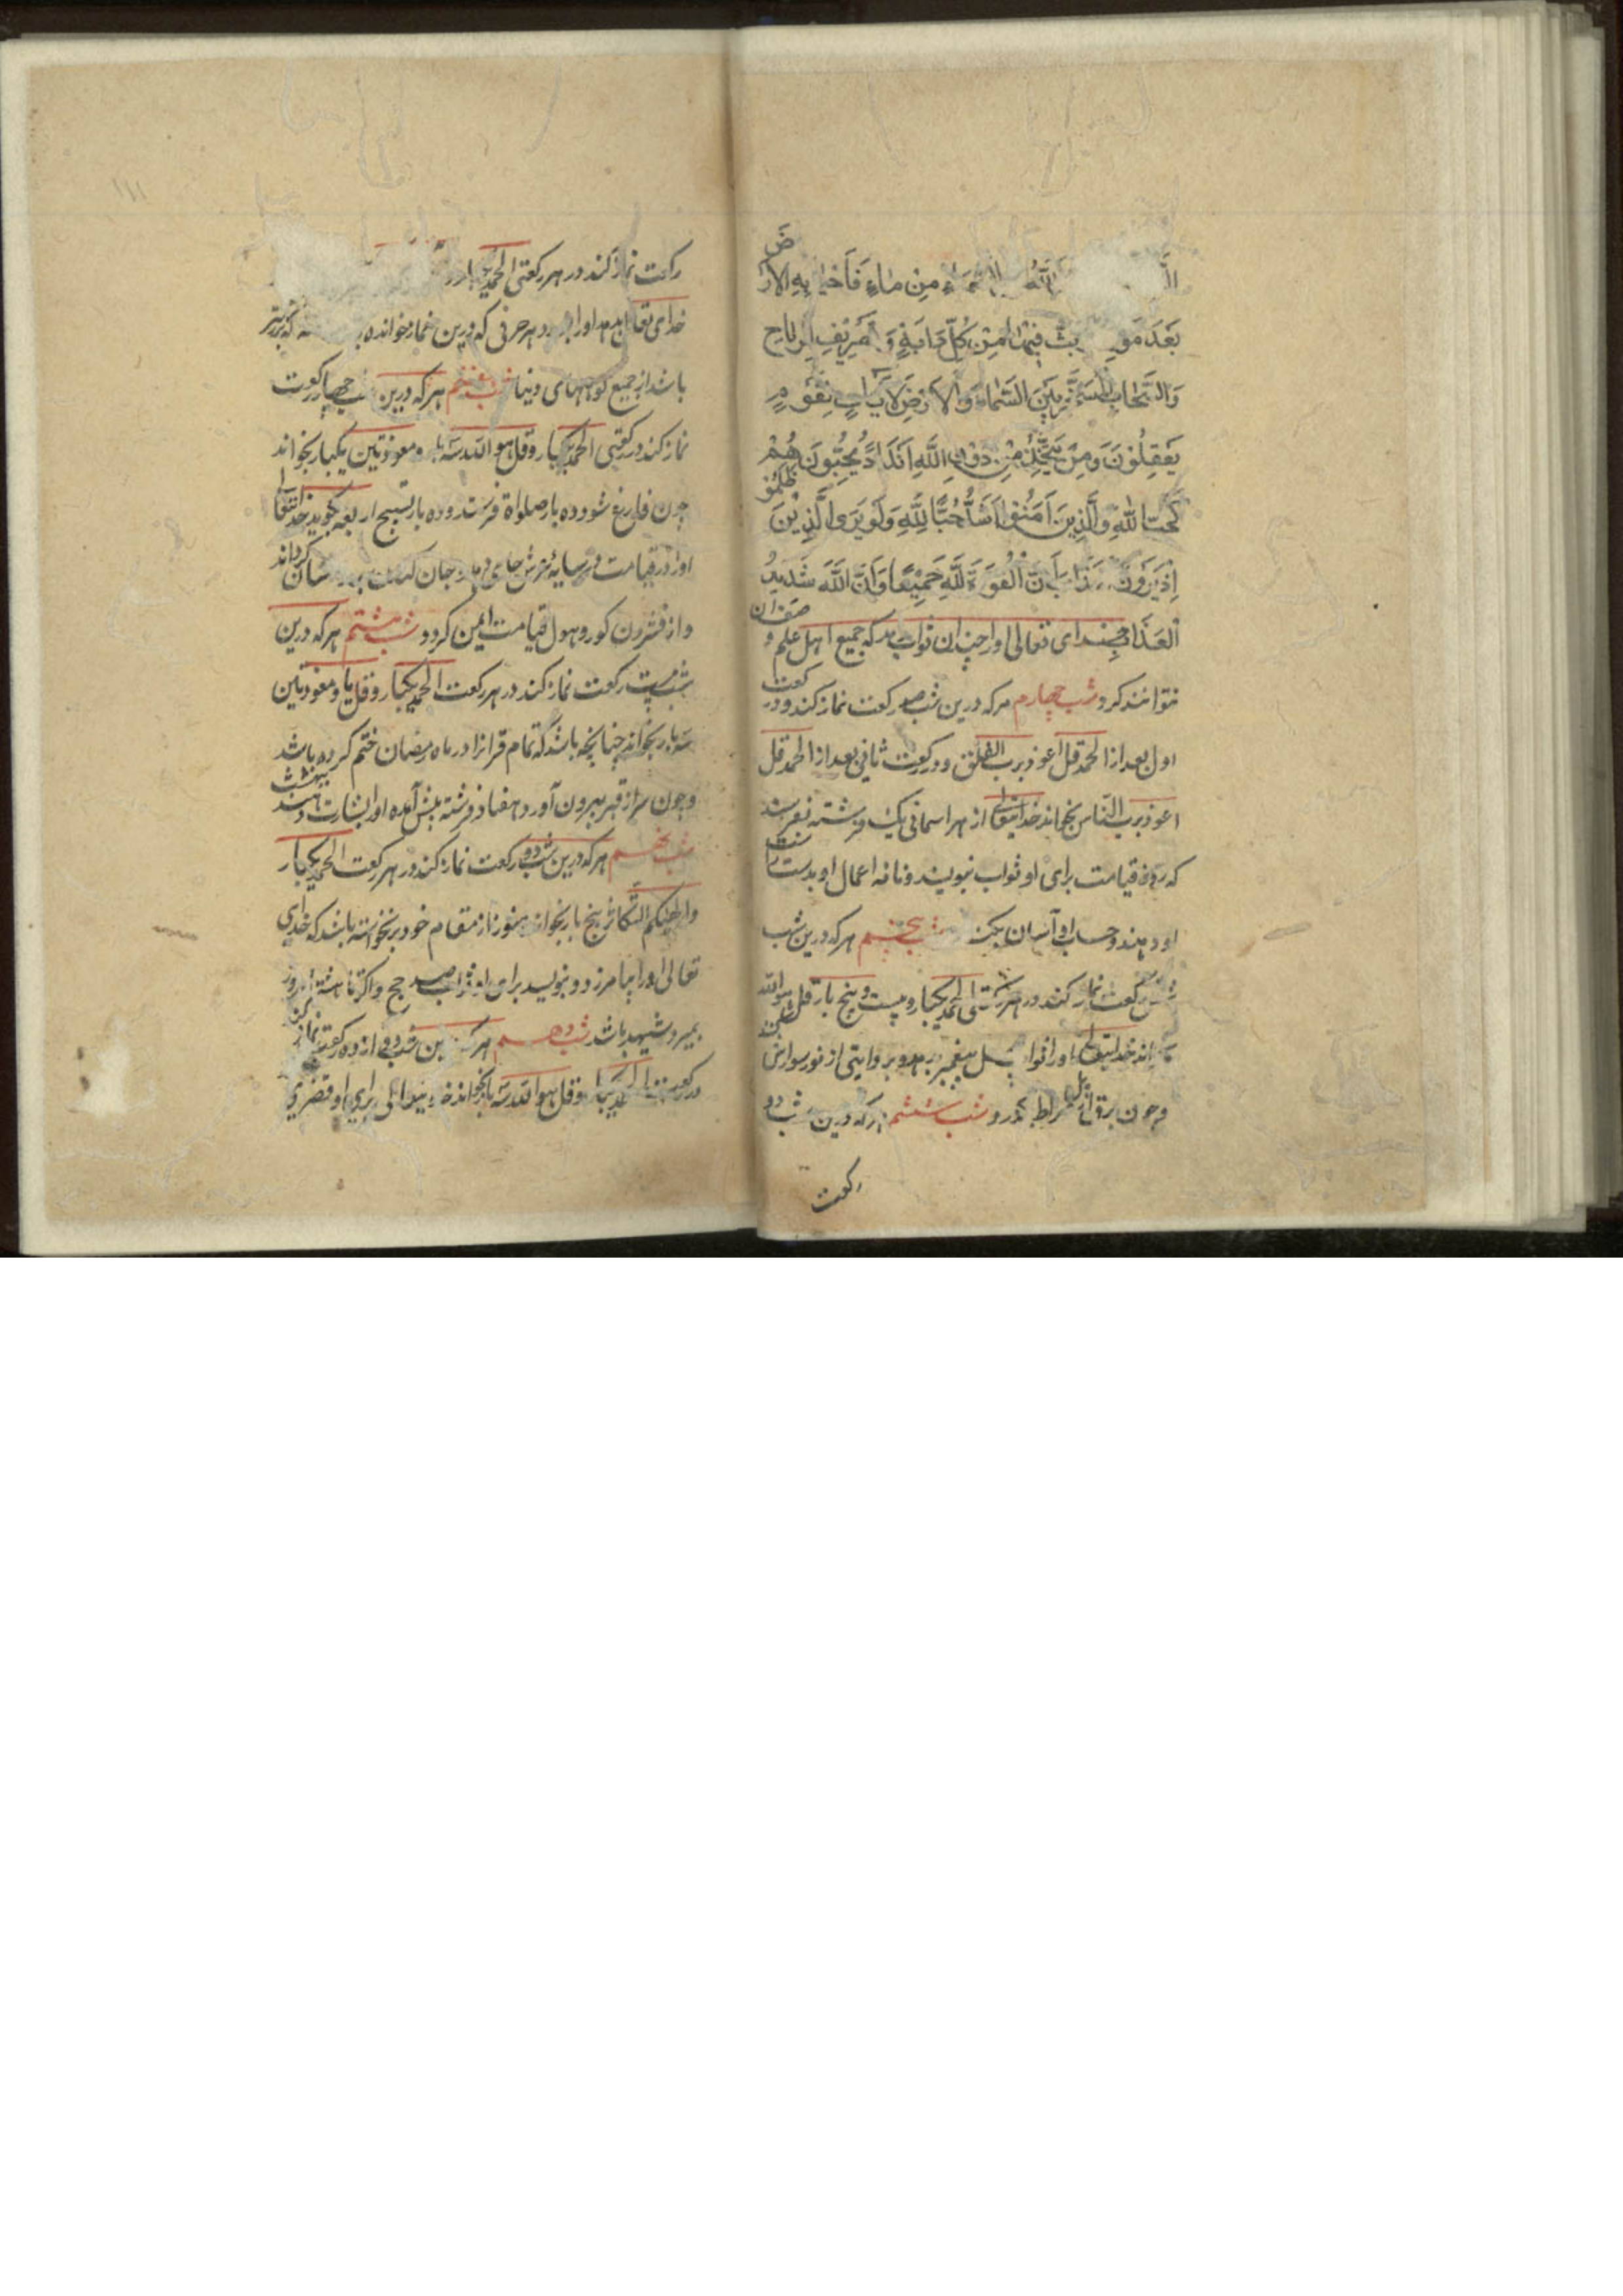 الله السماء من ماء فاحیا به الارض
بعد مو بث فیها من کل دابة و تصریف الریاح
والسحاب المسخر بین السماء والارض لآیات لقوم
یعقلون ومن یتخذ من دون الله اندادا یحبونهم
کحب الله والذین آمنوا اشد حبا لله ولو یری الذین ظلموا
اذ یرون ان القوة لله جمیعا وان الله شدید
العذاب خدای تعالی اورا چندان ثواب دهد که جمیع اهل علم و صفت ان
نتوانند کرد شب چهارم هر که درین شب صد رکعت نماز کند و در رکعت
اول بعد از الحمد قل اعوذ برب الفلق و در رکعت ثانی بعد از الحمد قل
اعوذ برب الناس بخواند خدایتعالی از هر اسمانی یک فرشته بفرستد
که روز قیامت برای او ثواب نویسند و نامه اعمال او بدست راست
او دهند و حساب او آسان بکنند شب پنجم هر که درین شب
رکعت نماز کند در هر رکعتی الحمد یکبار و بیست و پنج بار قل هو الله
خدایتعالی اورا ثواب پیغمبر بدهد و بروایتی از نور سوارش کند
و چون برق از پل صراط بگذرد شب ششم هر که درین شب دو
رکعت
۱۱۱
رکعت نماز کند در هر رکعتی الحمد
خدای تعالی بدهد اورا هر حرفی که درین نماز خوانده که بزرگتر
باشد از جمیع کوههای دنیا شب هفتم هر که درین شب چهار رکعت
نماز کند در رکعتی الحمد یکبار و قل هو الله سه بار و معوذتین یکبار بخواند
چون فارغ شود ده بار صلواة فرستد و ده بار تسبیح اربعه بگوید خدایتعالی
اورا در قیامت در سایه عرش جای دهد و جان کندن برو آسان گرداند
و از فشردن کور و هول قیامت ایمن کردد شب هشتم هر که درین
شب بیست رکعت نماز کند در هر رکعت الحمد یکبار و قل یا و معوذتین
سه بار بخواند چنانچه باشد که تمام قرانرا در ماه رمضان ختم کرده باشد
و چون سر از قبر بیرون آورد هفتاد فرشته پیش آمده اورا بشارت بهشت دهند
شب نهم هر که درین شب دو رکعت نماز کند در هر رکعت الحمد یکبار
و الهیکم التکاثر پنج بار بخواند هنوز از مقام خود برنخواسته باشد که خدای
تعالی اورا بیامرزد و بنویسد برای او ثواب صد حج و اکر تا هشت روز
بمیرد شهید باشد شب دهم هر که درین شب دوازده رکعت نماز کند
در رکعت الحمد یکبار و قل هو الله سه بار بخواند خدایتعالی برای او قصری